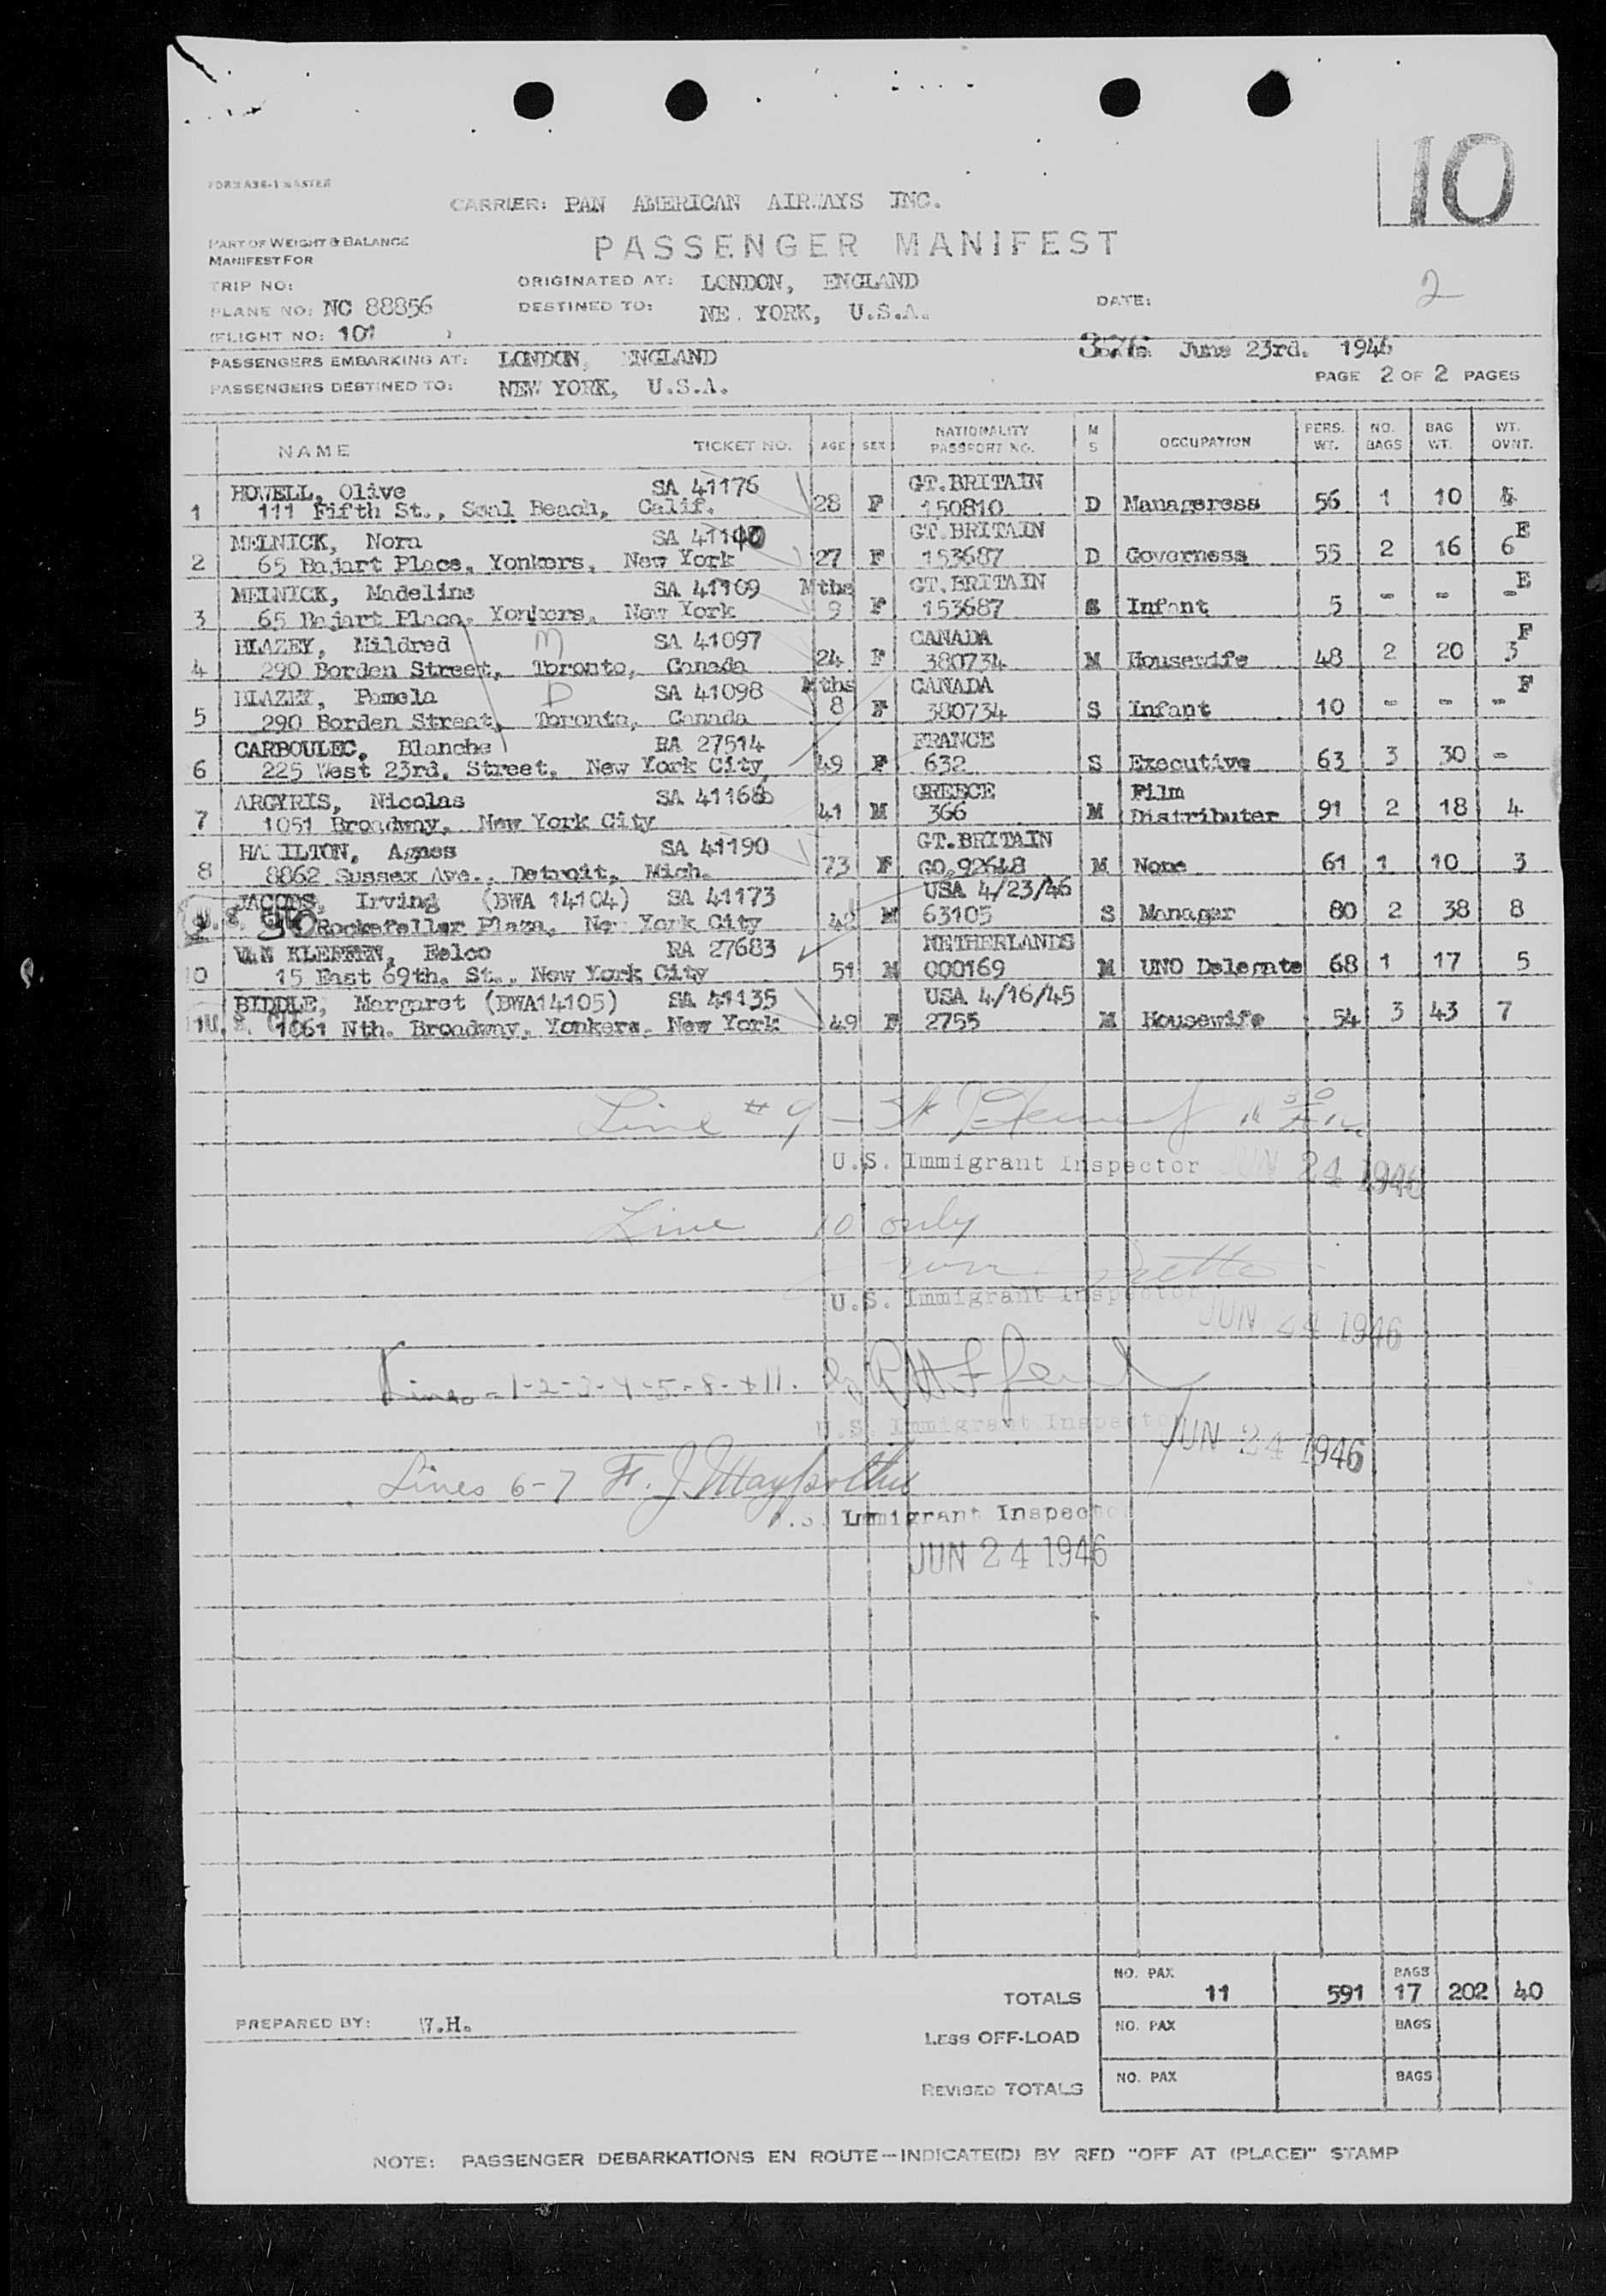 10
FORM A36-1 MASTER
CARRIER: PAN AMERICAN AIRWAYS INC.
PART OF WEIGHT & BALANCE
MANIFEST FOR
PASSENGER MANIFEST
TRIP NO:
ORIGINATED AT: LONDON, ENGLAND
PLANE NO: NC 88856
DESTINED TO: NE. YORK, U.S.A.
DATE:
2
(FLIGHT NO: 101 )
PASSENGERS EMBARKING AT: LONDON, ENGLAND
June 23rd. 1946
PASSENGERS DESTINED TO: NEW YORK, U.S.A.
PAGE 2 OF 2 PAGES
NAME TICKET NO. AGE SEX NATIONALITY PASSPORT NO. M S OCCUPATION PERS. WT. NO. BAGS BAG WT. WT. OVNT.
HOWELL, Olive SA 41176 GT.BRITAIN
1 111 Fifth St., Seal Beach, Calif. 28 F 150810 D Manageress 56 1 10
MELNICK, Nora SA GT.BRITAIN E
2 65 Bajart Place, Yonkers, New York 27 F 153687 D Governess 55 2 16 6
MELNICK, Madeline SA 41109 Mths GT.BRITAIN E
3 65 Bajart Place, Yonkers, New York 9 F 153687 S Infant 5 - - -
BLAZEY, Mildred M SA 41097 CANADA F
4 290 Borden Street, Toronto, Canada 24 F 380734 M Housewife 48 2 20 3
BLAZEY, Pamela D SA 41098 Mths CANADA F
5 290 Borden Street, Toronto, Canada 8 F 380734 S Infant 10 - - -
CARBOULEC, Blanche RA 27514 FRANCE
6 225 West 23rd. Street, New York City 49 F 632 S Executive 63 3 30 -
ARGYRIS, Nicolas SA 41168 GREECE Film
7 1051 Broadway, New York City 41 M 366 M Distributer 91 2 18 4
HAMILTON, Agnes SA 41190 GT.BRITAIN
8 8862 Sussex Ave., Detroit, Mich. 73 F GO.92648 M None 61 1 10 3
JACOBS, Irving (BWA 14104) SA 41173 USA 4/23/46
30 Rockefeller Plaza, New York City 42 M 63105 S Manager 80 2 38 8
VAN KLEFFEN, Eelco RA 27683 NETHERLANDS
10 15 East 69th. St., New York City 51 M 000169 M UNO Delegate 68 1 17 5
BIDDLE, Margaret (BWA14105) SA 41135 USA 4/16/45
11 1061 Nth. Broadway, Yonkers, New York 49 F 2755 M Housewife 54 3 43 7
Line # 9 -
U.S. Immigrant Inspector JUN 24 1946
Line 10 only
U.S. Immigrant Inspector
JUN 24 1946
Lines - 1-2-3-4-5-8-+11.
U.S. Immigrant Inspector
JUN 24 1946
Lines 6-7 F. J.
U.S. Immigrant Inspector
JUN 24 1946
TOTALS NO. PAX 11 591 BAGS 17 202 40
PREPARED BY: W.H.
LESS OFF-LOAD NO. PAX BAGS
REVISED TOTALS NO. PAX BAGS
NOTE: PASSENGER DEBARKATIONS EN ROUTE—INDICATE(D) BY RED "OFF AT (PLACE)" STAMP